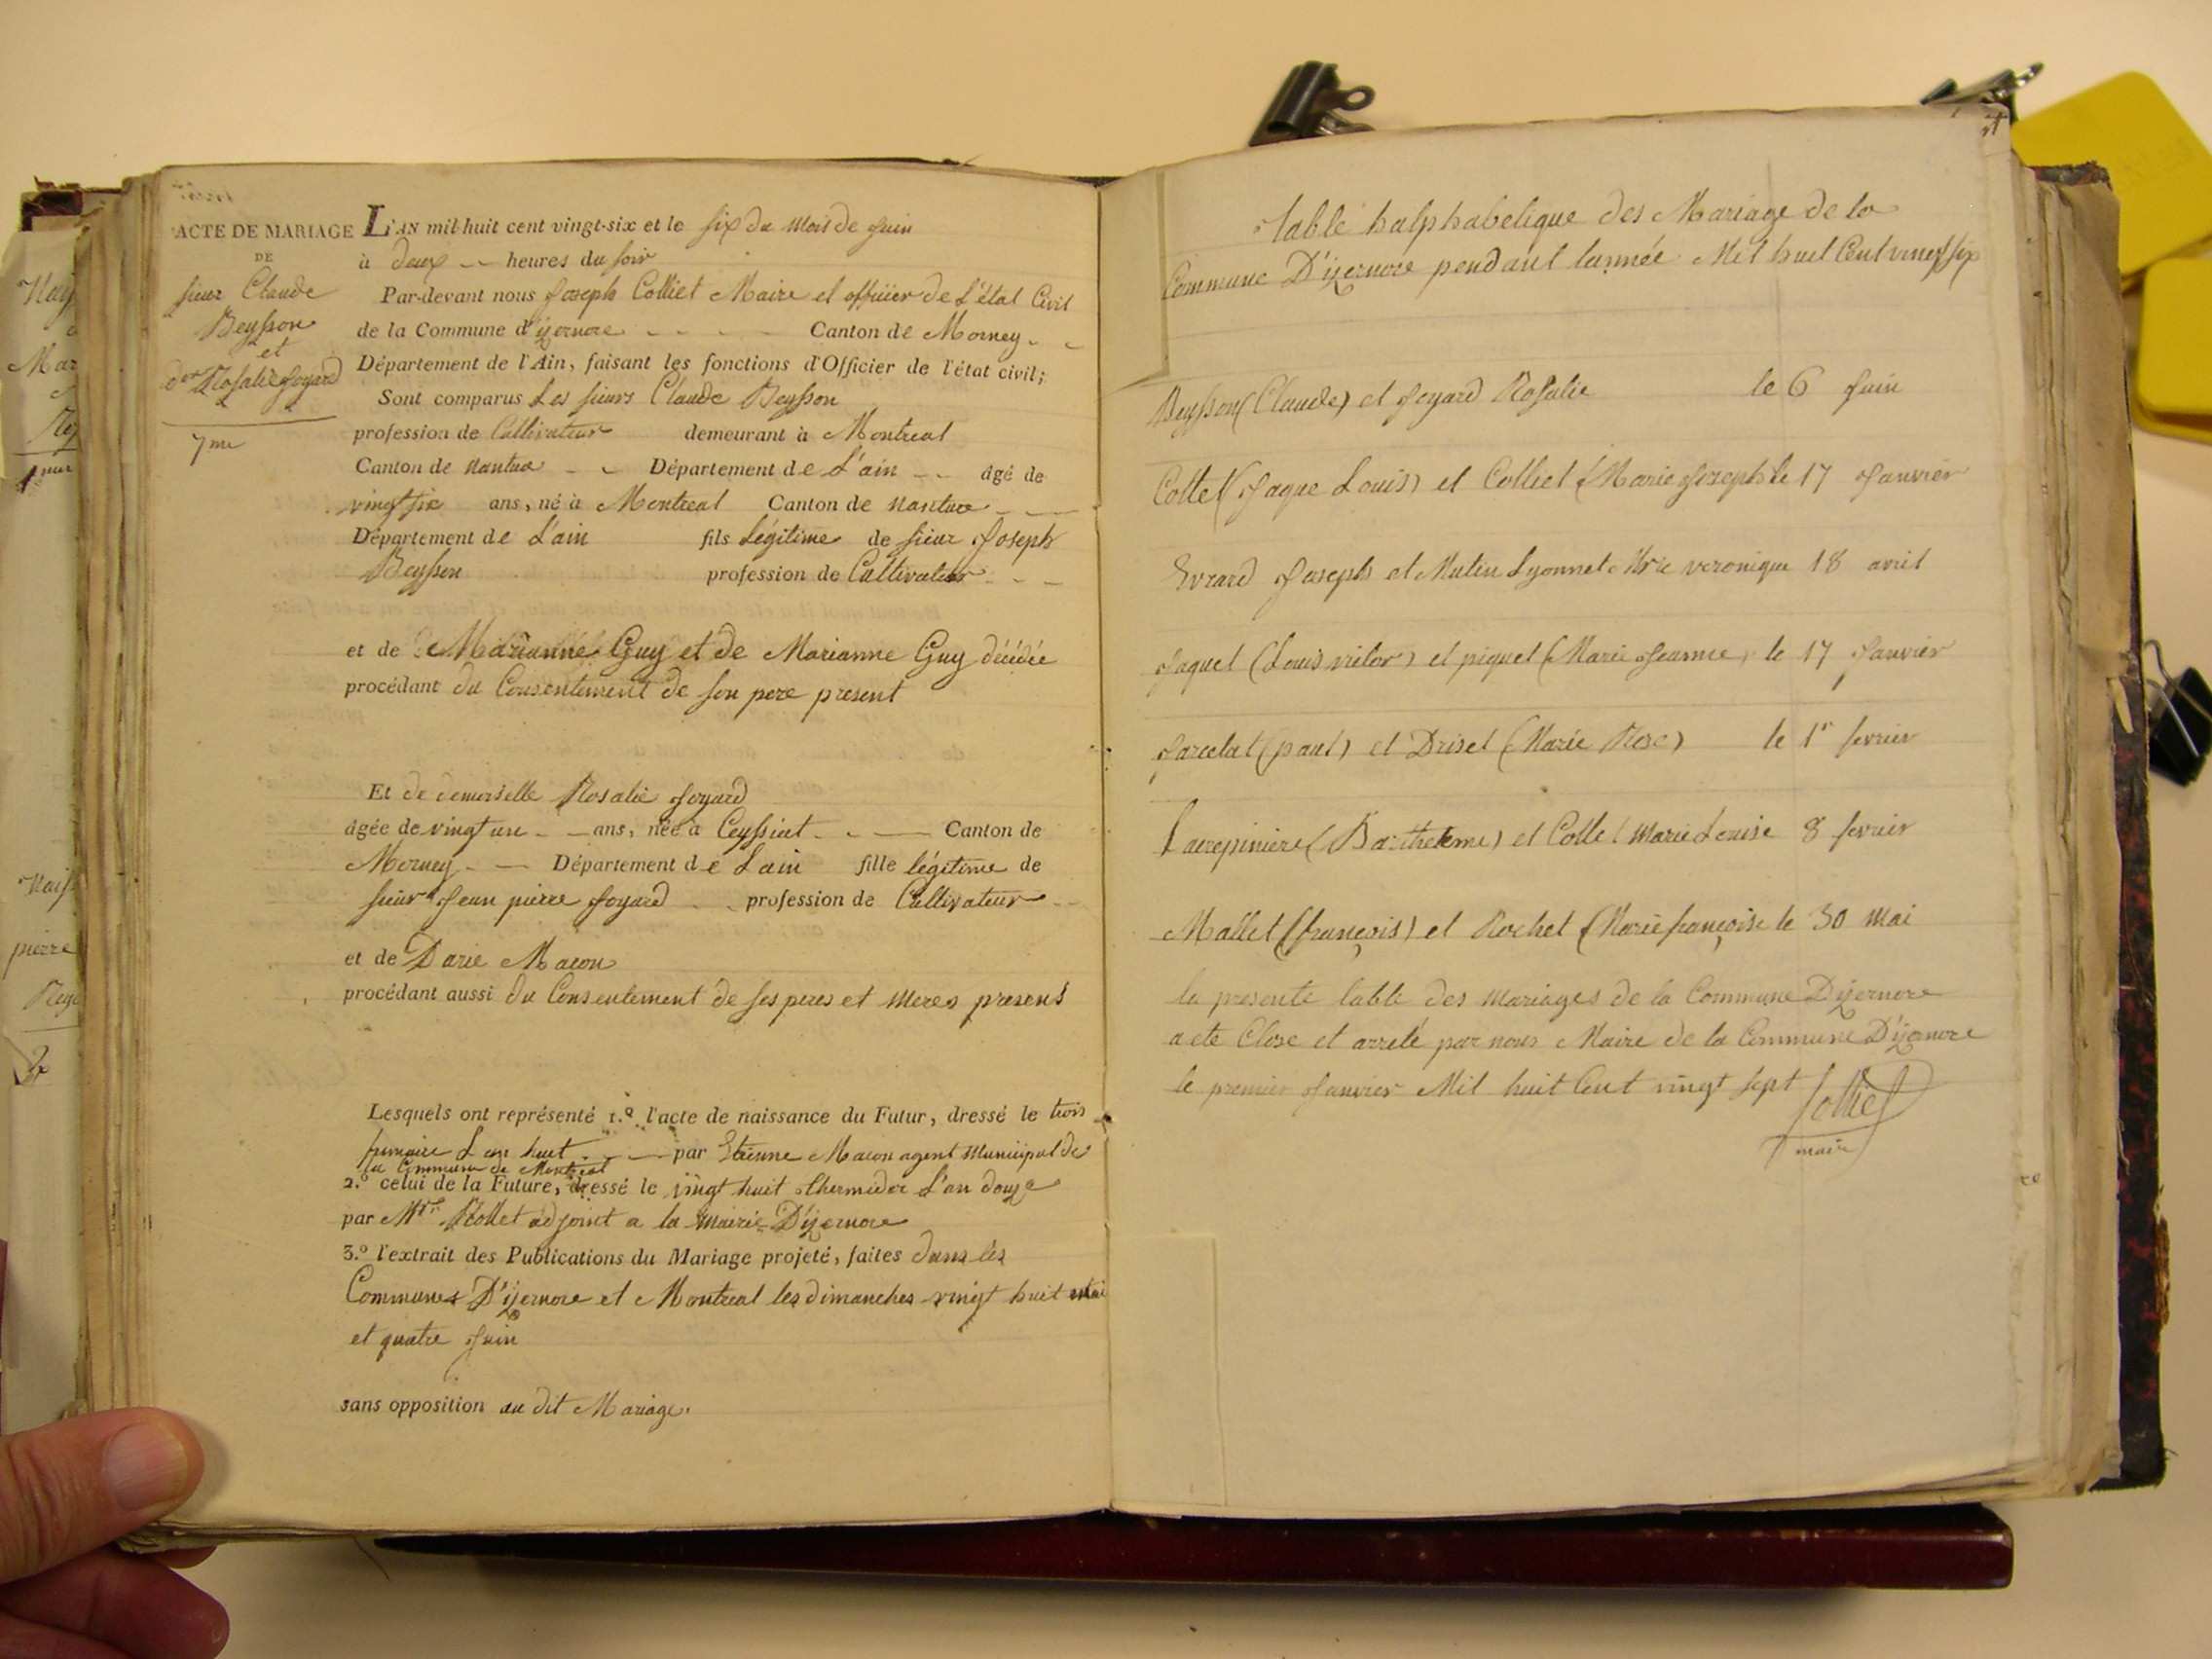 ACTE DE MARIAGE
DE
sieur Claude
Beysson
et
Rosalie Joyard
7me
L'AN mil-huit cent vingt-six et le six du mois de Juin
à deux heures du soir
Par-devant nous Joseph Colliet Maire et officier de L'état Civil
de la Commune d'izernore Canton de Morney
Département de l'Ain, faisant les fonctions d'Officier de l'état civil;
Sont comparus Les sieurs Claude Beysson
profession de Cultivateur demeurant à Montreal
Canton de Nantua Département de L'ain âgé de
vingt six ans, né à Montreal Canton de Nantua
Département de L'ain fils légitime de sieur Joseph
Beysson profession de Cultivateur
et de Marianne Guy et de Marianne Guy décédée
procédant du Consentement de son pere present
Et de demoiselle Rosalie Joyard
âgée de vingt un ans, née à Ceyssiat Canton de
Morney Département de L'ain fille légitime de
sieur Jean pierre Joyard profession de Cultivateur
et de Darie Macon
procédant aussi du Consentement de ses peres et meres presens
Lesquels ont représenté 1.º l'acte de naissance du Futur, dressé le trois
frimaire L'an huit par Etienne Macon agent Municipal de
la Commune de Montreal
2.º celui de la Future, dressé le vingt huit thermidor L'an douze
par Rollet adjoint a la mairie D'izernore
3.º l'extrait des Publications du Mariage projeté, faites dans les
Communes D'izernore et Montreal les dimanches vingt huit mai
et quatre Juin
sans opposition au dit Mariage.
table halphabetique des Mariage de la
Commune D'izernore pendant lannée Mil huit Cent vingt six
Beysson (Claude) et Joyard Rosalie le 6 Juin
Collet (Jaque Louis) et Colliet (Marie Joseph le 17 Janvier
Evrard Joseph et Mutin Lyonnet Mrie veronique 18 avril
Jaquet (Louis victor) et piquet (Marie Jeanne, le 17 Janvier
Jarcelat (paul) et Driset (Marie Rose) le 1r fevrier
Lacrepiniere (Barthelemi) et Collet Marie Louise 8 fevrier
Mallet (françois) et Rochet (Marie françoise le 30 Mai
la presente table des mariages de la Commune Dizernore
a ete Close et arreté par nous Maire de la Commune D'izernore
le premier Janvier Mil huit Cent vingt sept Colliet
maire